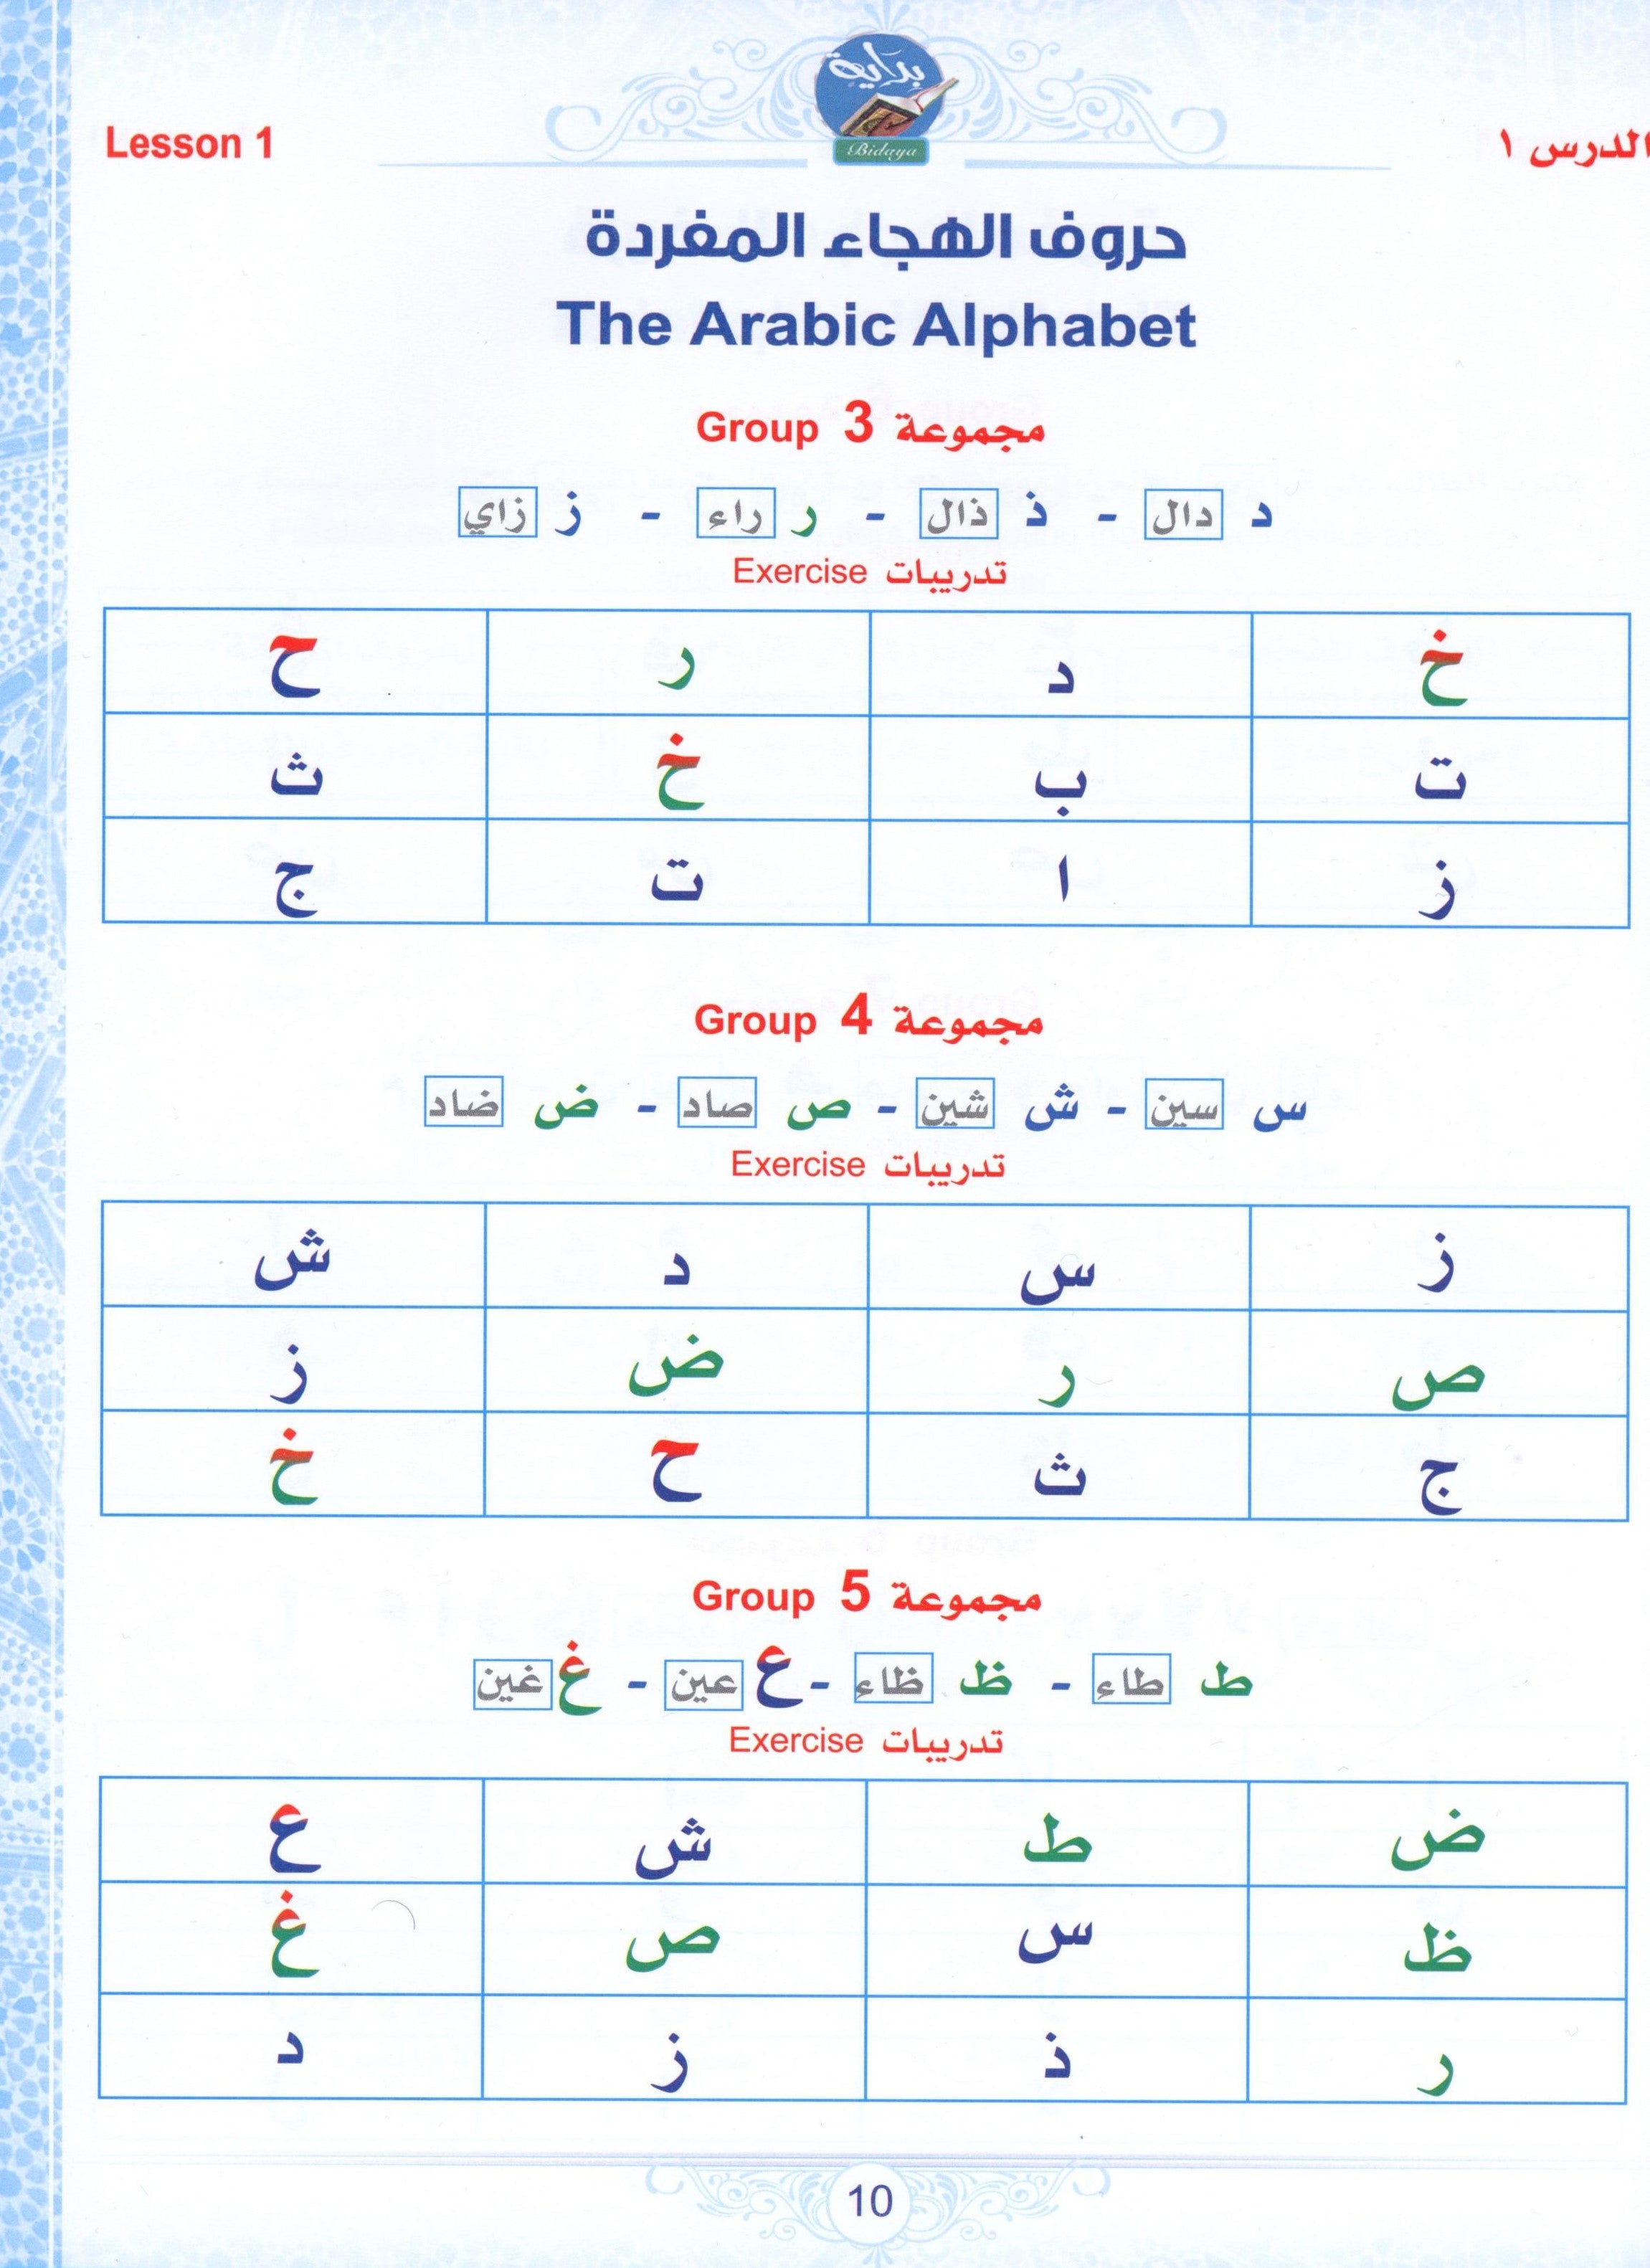 بداية
Bidaya
Lesson 1
الدرس ١
حروف الهجاء المفردة
The Arabic Alphabet
Group 3 مجموعة
د دال - ذ ذال - ر راء - ز زاي
Exercise تدريبات
خ د ر ح
ت ب خ ث
ز ا ت ج
Group 4 مجموعة
س سين - ش شين - ص صاد - ض ضاد
Exercise تدريبات
ز س د ش
ص ر ض ز
ج ث ح خ
Group 5 مجموعة
ط طاء - ظ ظاء - ع عين - غ غين
Exercise تدريبات
ض ط ش ع
ظ س ص غ
ر ذ ز د
10